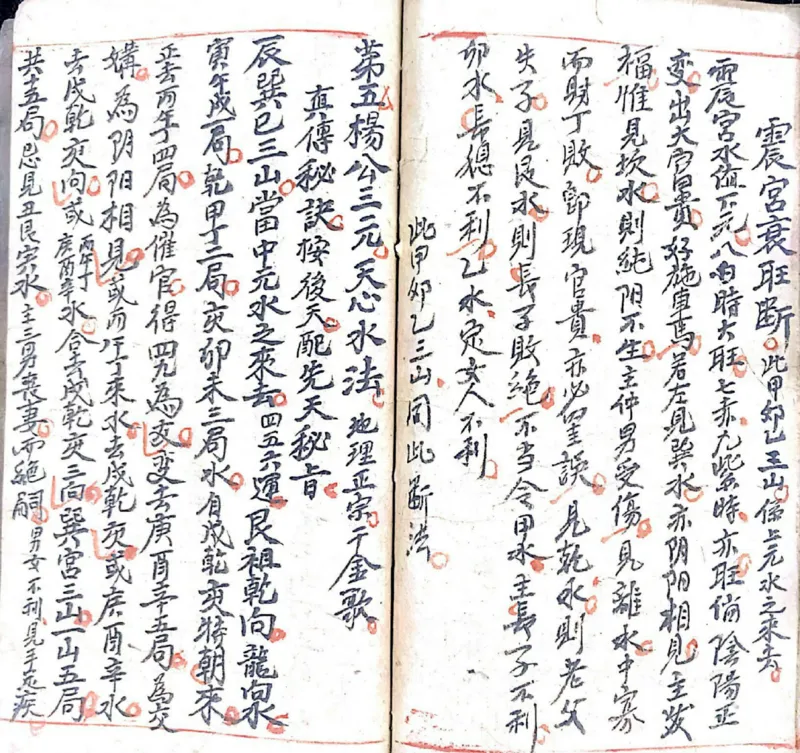 震宮衰旺断此甲卯乙三山俻上元水之來去
震宮水值下元八白時大旺七赤九紫時亦旺倘陰陽正
变出大官貴好施車馬若左見巽水亦阴阳相見主发
福惟見坎水則純阴不生主仲男受傷見離水中寡
而財丁敗即現官貴亦必罣誤見乾水則老父
失子見艮水則長子敗絕不当令甲水主長子不利
卯水長媳不利乙水定女人不利
此甲卯乙三山同此断法
第五楊公三元天心水法地理正宗千金歌
真傳秘訣按後天配先天秘旨
辰巽巳三山當中元水之來去四五六運艮祖乾向龍向水
寅午戌一局乾甲丁二局亥卯未三局水自戌乾亥特朝來
正去丙午丁四局為催官得四九為友变去庚酉辛五局為交
媾為阴阳相見或丙午丁來水去戌乾亥或庚酉辛水
去戌乾亥向或丙午丁庚酉辛水合去戌乾亥三向巽宮三山一山五局
共十五局忌見丑艮寅水主三男喪妻而絕嗣男女不利見手足疾